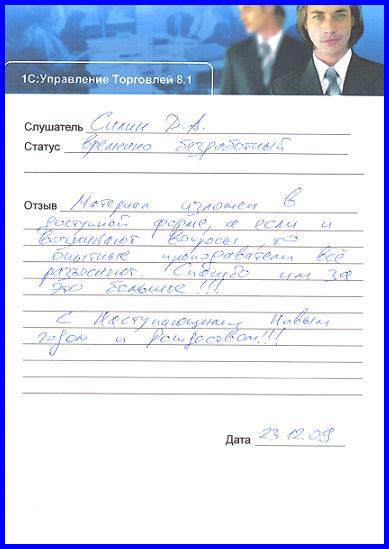 1С:Управление Торговлей 8.1
Слушатель Силин Д.А.
Статус временно безработный
Отзыв Материал изложен в
доступной форме, а если и
возникают вопросы, то
опытные преподаватели всё
разъясняют. Спасибо им за
это большое!!!
С Наступающим Новым
годом и Рождеством!!!
Дата 23.12.09